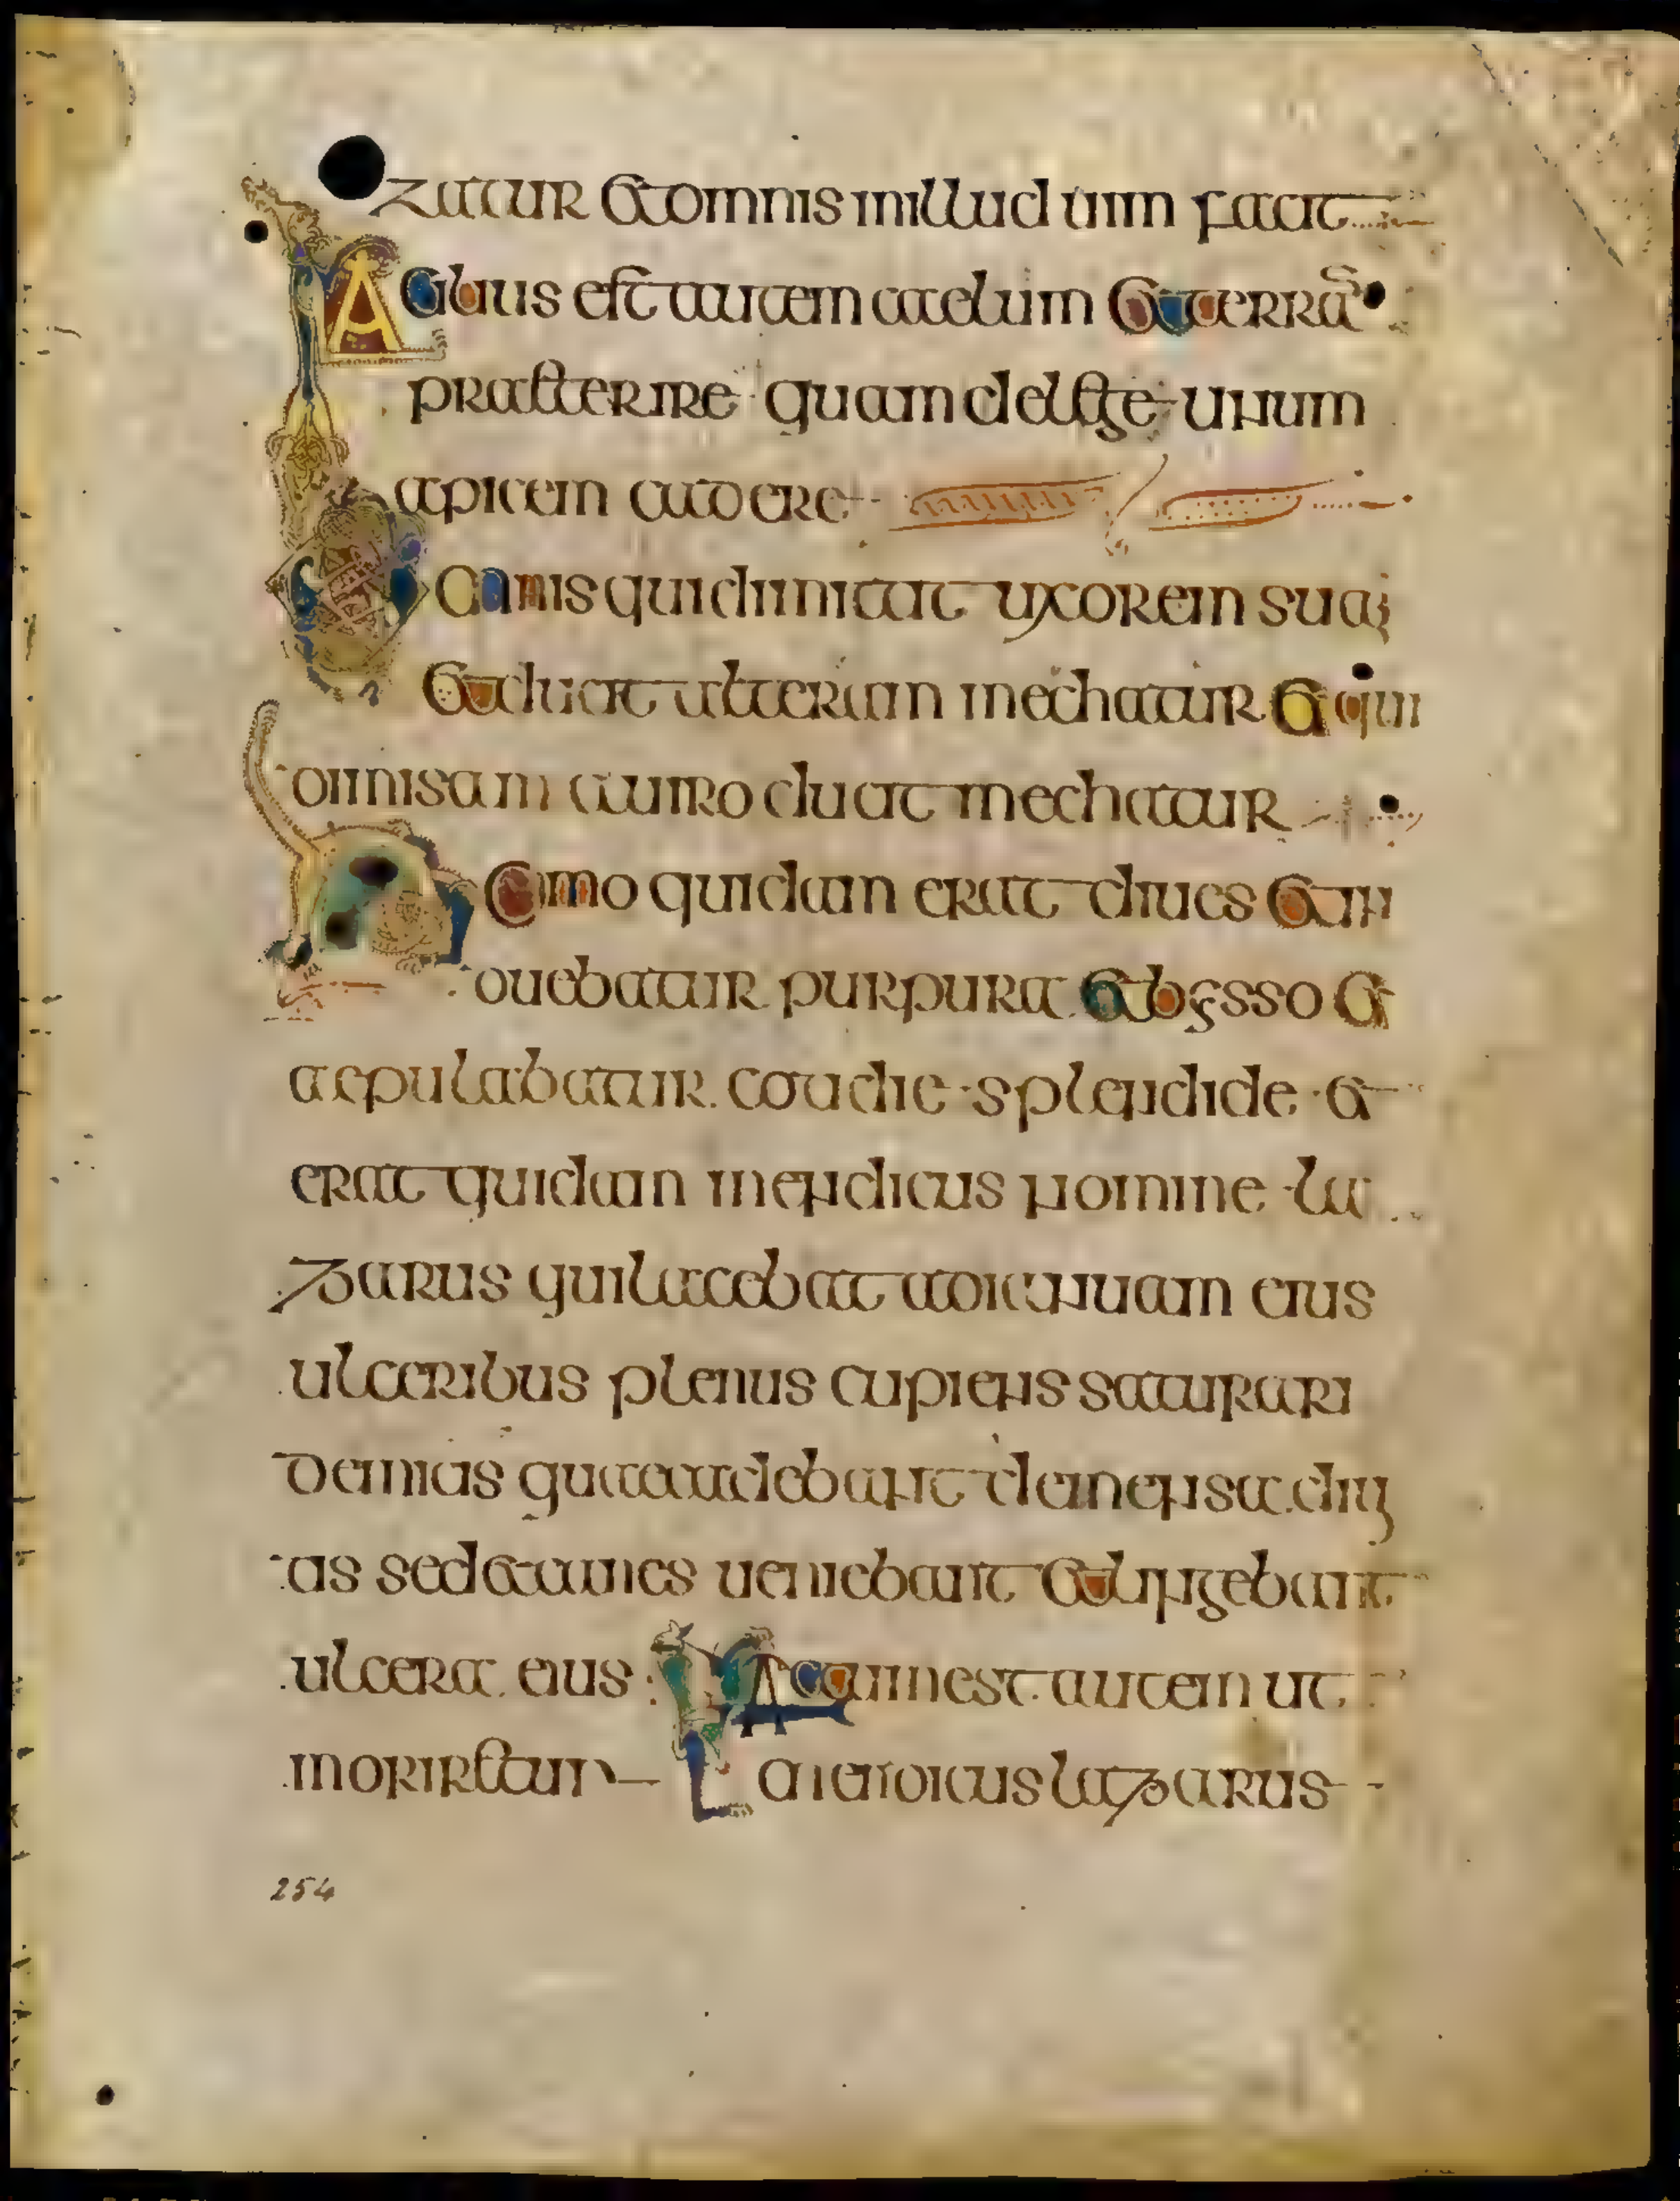 zatur et omnis in illud uim facit
Facilius est autem caelum et terrā
praeterire quam de lege unum
apicem cadere
Omnis qui dimitat uxorem suam
et ducit alteram mechatur et qui
dimisam a uiro ducit mechatur
Homo quidam erat diues et in
duebatur purpura et bysso et
aepulabatur cotidie splendide et
erat quidam mendicus nomine la
zarus qui iacebat ad ianuam eius
ulceribus plenus cupiens saturari
de micis quae cadebant de mensa diui
tis sed et canes ueniebant et lingebant
ulcera eius Factum est autem ut
moriretur mendicus lazarus
254